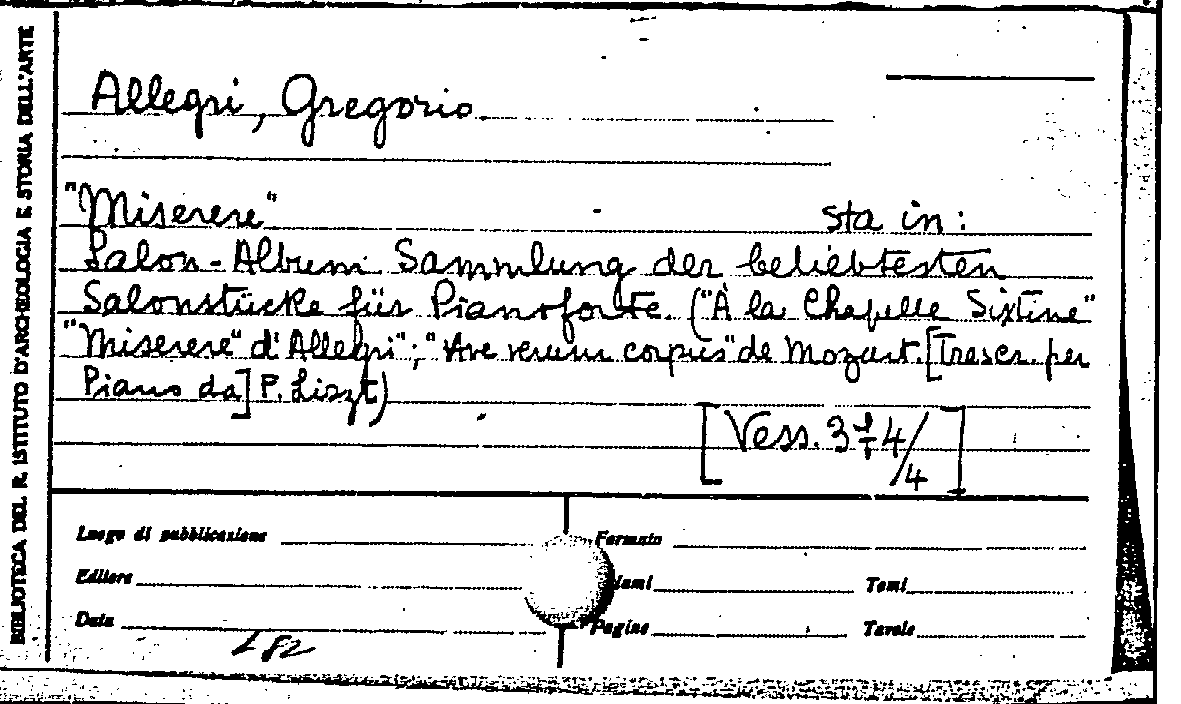 BIBLIOTECA DEL R. ISTITUTO D'ARCHEOLOGIA E STORIA DELL'ARTE
Allegri, Gregorio
"Miserere" sta in:
Salon-Album Sammlung der beliebtesten
Salonstücke für Pianoforte. ("À la Chapelle Sixtine"
"Miserere" d'Allegri"; "Ave verum corpus" de Mozart. [Trascr. per
Piano da] P. Liszt)
[Vess. 4/4]
Luogo di pubblicazione Formato
Editore Tomi
Data Pagine Tavole
182